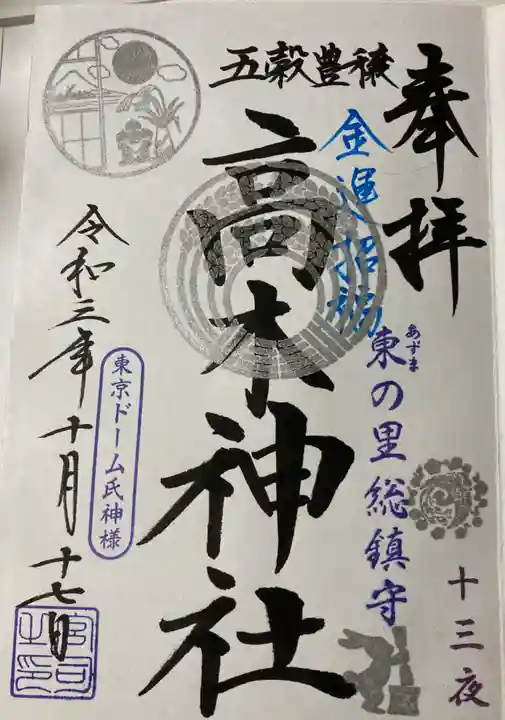 奉拝
五穀豊穣
金運招福
東の里総鎮守
あずま
十三夜
高木神社
東京ドーム氏神様
令和三年十月十七日